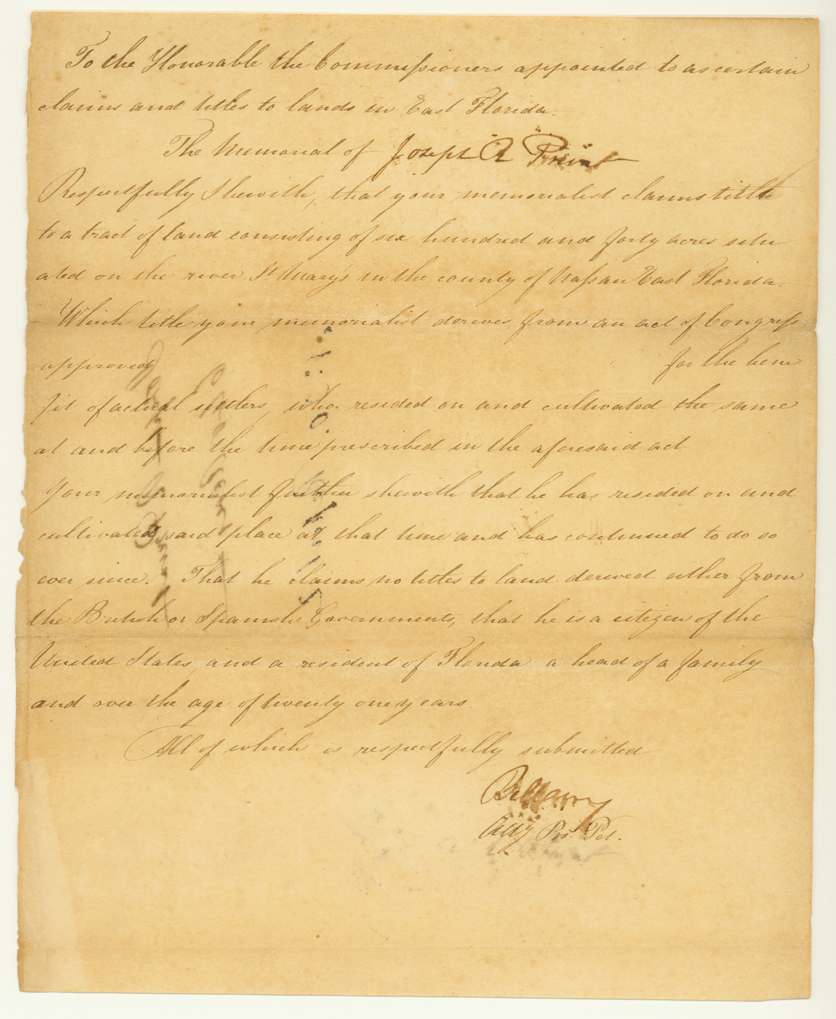 To the Honorable the Commissioners appointed to ascertain
claims and titles to lands in East Florida.
The Memorial of Joseph R Prevatt
Respectfully Sheweth, that your memorialist claims title
to a tract of land consisting of six hundred and forty acres situ
ated on the river St Mary's in the county of Nassau East Florida.
Which title your memorialist derives from an act of Congress
approved for the bene
fit of actual settlers, who resided on and cultivated the same
at and before the time prescribed in the aforesaid act
Your memorialist further sheweth that he has resided on and
cultivated said place at that time and has continued to do so
ever since. That he claims no titles to land derived either from
the British or Spanish Governments, that he is a citizen of the
United States, and a resident of Florida a head of a family
and over the age of twenty one years.
All of which is respectfully submitted
Bellamy
Atty Pro. Pet.